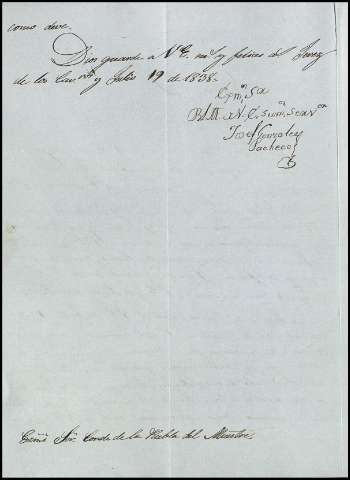 como deve.
Dios guarde a V.E. m.s y felices a.s Jerez
de los Cav.ros y Julio 19 de 1838.
Exm.o Sr
B.L.M. a V.E. su m. Serv.or
Jose Gonzalez
Pacheco
Exmo. Sor. Conde de la Puebla del Maestre.